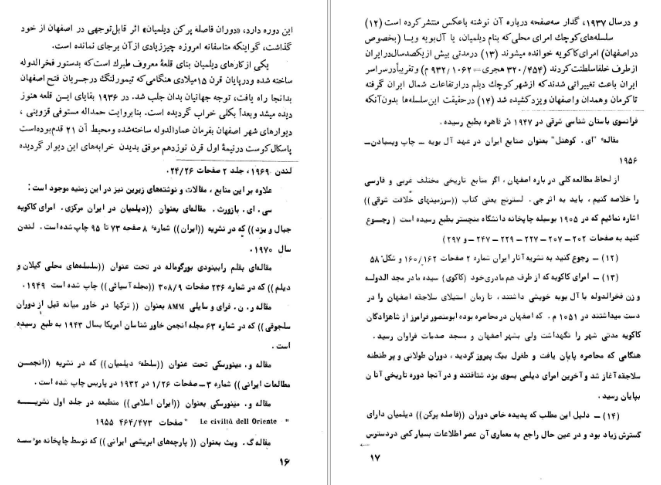 این دوره دارد، «دوران فاصله پرکن دیلمیان» اثر قابل‌توجهی در اصفهان از خود
گذاشت، گو اینکه متاسفانه امروزه چیز زیادی از آن برجای نمانده است.
یکی از کارهای دیلمیان بنای قلعهٔ معروف طبرک است که بدستور فخرالدوله
ساخته شده و در پایان قرن ۱۵ میلادی هنگامی که تیمور لنگ در جریان فتح اصفهان
بدانجا راه یافت، توجه جهانیان بدان جلب شد. در ۱۹۳۶ بقایای این قلعه هنوز
دیده میشد و بعداً بکلی خراب گردیده است. بنابر روایت حمدالله مستوفی قزوینی،
دیوارهای شهر اصفهان بفرمان عمادالدوله ساخته شده و محیط آن ۲۱ قدم بوده است
پاسکال کوست در نیمهٔ اول قرن نوزدهم موفق بدیدن خرابه‌های این دیوار گردیده
لندن ۱۹۶۹، جلد ۲ صفحات ۲۴/۲۶.
علاوه بر این منابع، مقالات و نوشته‌های زیرین نیز در این زمینه موجود است:
سی. ای. بازورث. مقاله‌ای بعنوان ((دیلمیان در ایران مرکزی. امرای کاکویه
جبال و یزد)) که در نشریه ((ایران)) شمارهٔ ۸ صفحه ۷۳ تا ۹۵ چاپ شده است. لندن
سال ۱۹۷۰.
مقاله‌ای بقلم رابینو دی بورگوماله در تحت عنوان ((سلسله‌های محلی گیلان و
دیلم)) که در شماره ۲۳۶ صفحات ۳۰۸/۹ ((مجله آسیائی)) چاپ شده است. ۱۹۴۹
مقاله و. ن. فرای و سایلی AMM بعنوان ((ترکها در خاور میانه قبل از دوران
سلجوقی)) که در شماره ۶۳ مجله انجمن خاور شناسان امریکا بسال ۱۹۴۳ به طبع رسیده
است.
مقاله و. مینورسکی تحت عنوان ((سلطهٔ دیلمیان)) که در نشریه ((انجمن
مطالعات ایرانی)) شماره ۳ــ صفحات ۱/۲۶ در ۱۹۳۲ در پاریس چاپ شده است.
مقاله و. مینورسکی بعنوان ((ایران اسلامی)) منطبعه در جلد اول نشریــه
" Le civiltà dell Oriente " صفحات ۴۶۴/۴۷۳ ۱۹۵۵
مقاله گ. ویت بعنوان ((پارچه‌های ابریشمی ایرانی)) که توسط چاپخانه موسسه
۱۶
و در سال ۱۹۳۷، گدار سه صفحه درباره آن نوشته با عکس منتشر کرده است (۱۲)
سلسله‌های کوچک امرای محلی که بنام دیلمیان، یا آل بویه و یا (بخصوص
در اصفهان) امرای کاکویه خوانده میشوند (۱۳) در مدتی بیش از یکصد سال در ایران
از طرف خلفا سلطنت کردند (۳۲۰/۴۵۴ هجری = ۹۳۲/۱۰۶۲ م) و تقریباً در سراسر
ایران باعث تغییراتی شدند که از شهر کوچک دیلم در ارتفاعات شمال ایران گرفته
تا کرمان و همدان و اصفهان و یزد کشیده شد (۱۴) در حقیقت این سلسله‌ها بدون آنکه
فرانسوی باستان شناسی شرقی در ۱۹۴۷ در قاهره بطبع رسیده.
مقاله "ای. کوهنل" بعنوان صنایع ایران در عهد آل بویه ــ چاپ ویسبادن ــ
۱۹۵۶
از لحاظ مطالعه کلی در باره اصفهان، اگر منابع تاریخی مختلف عربی و فارسی
را خلاصه کنیم، باید به اثر جی. لسترنج یعنی کتاب ((سرزمینهای خلافت شرقی))
اشاره نمائیم که در ۱۹۰۵ بوسیله چاپخانه دانشگاه منچستر بطبع رسیده است (رجوع
کنید به صفحات ۲۰۲ ــ ۲۰۷ ــ ۲۲۷ ــ ۲۲۹ ــ ۲۴۷ و ۲۹۷)
(۱۲) ــ رجوع کنید به نشریه آثار ایران شماره ۲ صفحات ۱۶۰/۱۶۲ و شکل ۵۸
(۱۳) ــ امرای کاکویه که از طرف هم مادری خود (کاکوی) سیده مادر مجد الدولــه
و زن فخرالدوله با آل بویه خویشی داشتند، تا زمان استیلای سلاجقه اصفهان را در
دست میداشتند در ۱۰۵۱ م. که اصفهان در محاصره بوده ابومنصور فرامرز از شاهزادگان
کاکویه مدتی شهر را نگهداشت ولی بشهر اصفهان و مسجد صدمات فراوان رسید.
هنگامی که محاصره پایان یافت و طغرل بیک پیروز گردید، دوران طولانی و پر طنطنه
سلاجقه آغاز شد و آخرین امرای دیلمی بسوی یزد شتافتند و در آنجا دوره تاریخی آنان
بپایان رسید.
(۱۴) ــ دلیل این مطلب که پدیده خاص دوران ((فاصله پرکن)) دیلمیان دارای
گسترش زیاد بود و در عین حال راجع به معماری آن عصر اطلاعات بسیار کمی در دسترس
۱۷